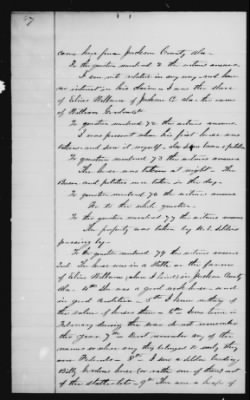 67
came here from Jackson County Ala.
To the question numbered 2 the witness answered
I am not related in any way and have
no interest in his claim. I was the slave
of Elias William of Jackson Co Ala. the name
of William
To question numbered 72 the witness answered
I was present when his first horse was
taken and saw it myself.
To question numbered 73 the witness answered
The horse was taken at night. The
Bacon and potatoes were taken in the day.
To question numbered 74 the witness answered
As to the whole question.
To the question numbered 77 the witness answered
The property was taken by U.S. soldiers
passing by.
To the question numbered 79 the witness answered
2nd The horse was in a stable on the farm
of Elias William where I lived in Jackson County
Ala. 4th She was a good work horse and
in good condition. 5th I know nothing of
the value of horses then. 6th Some time in
February during the war do not remember
the year 7th Do not remember any of the
names or when any they belonged to only they
were Federals. 8th I saw a soldier leading
Billy horse out of one of the
of the stable lots. 9th There was a heap of